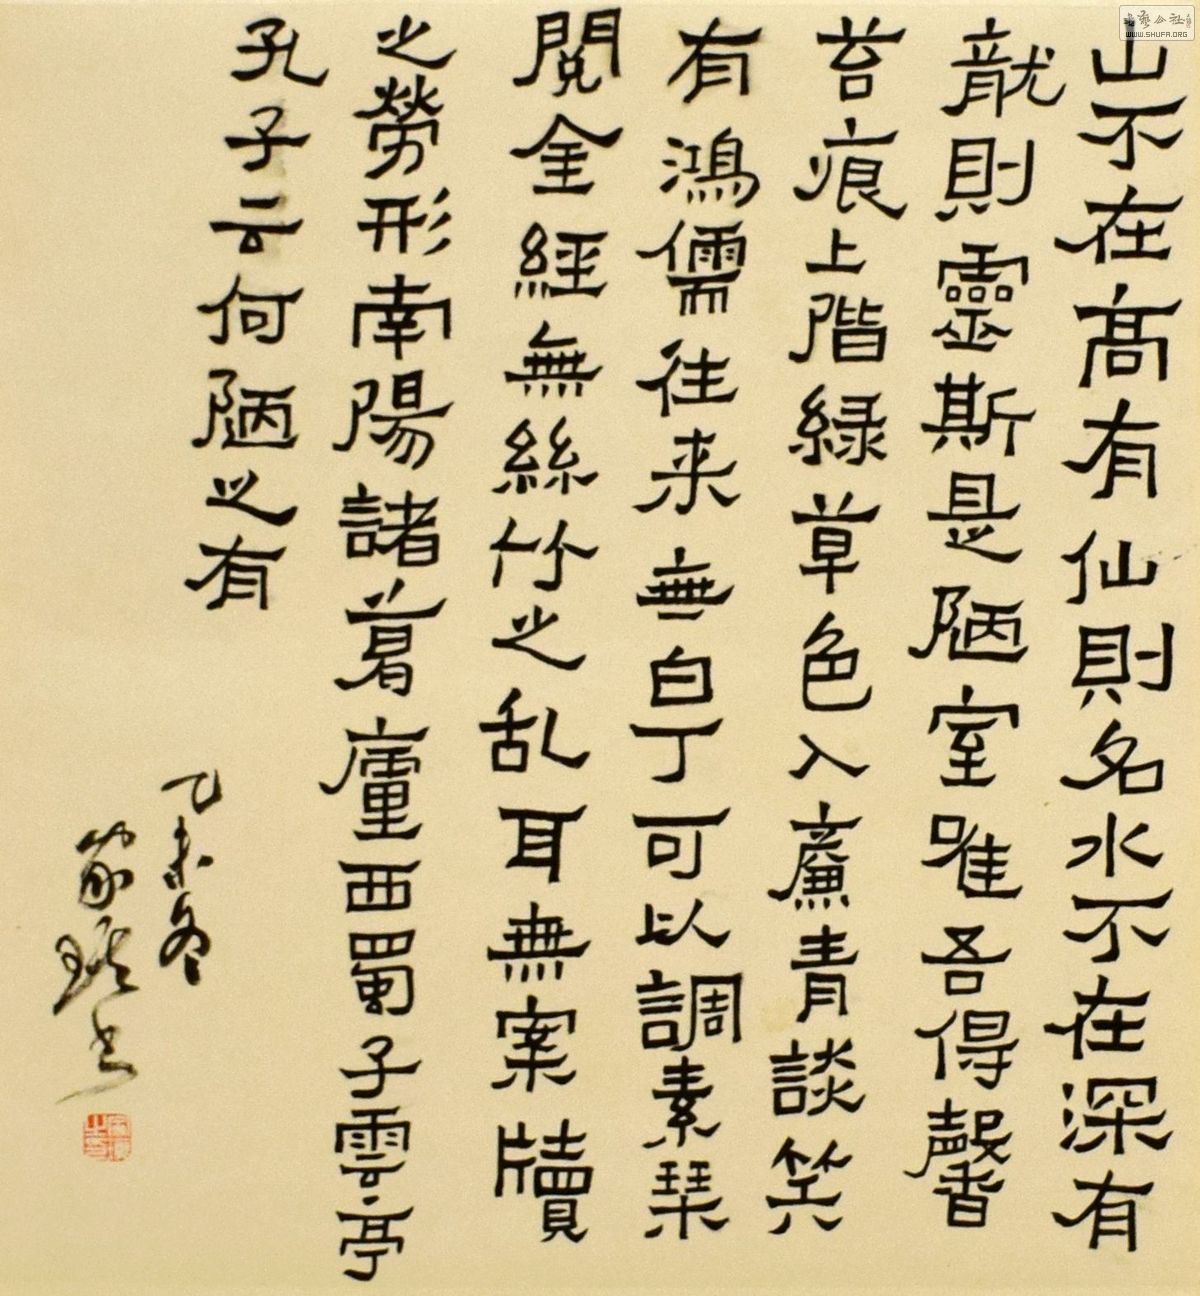 山不在髙有仙則名水不在深有
龍則靈斯是陋室唯吾得馨
苔痕上階緑草色入廉青談笑
有鴻儒往来無白丁可以調素琴
閱金經無絲竹之乱耳無案牘
之勞形南陽諸葛廬西蜀子雲亭
孔子云何陋之有
乙未冬
书艺公社
WWW.SHUFA.ORG